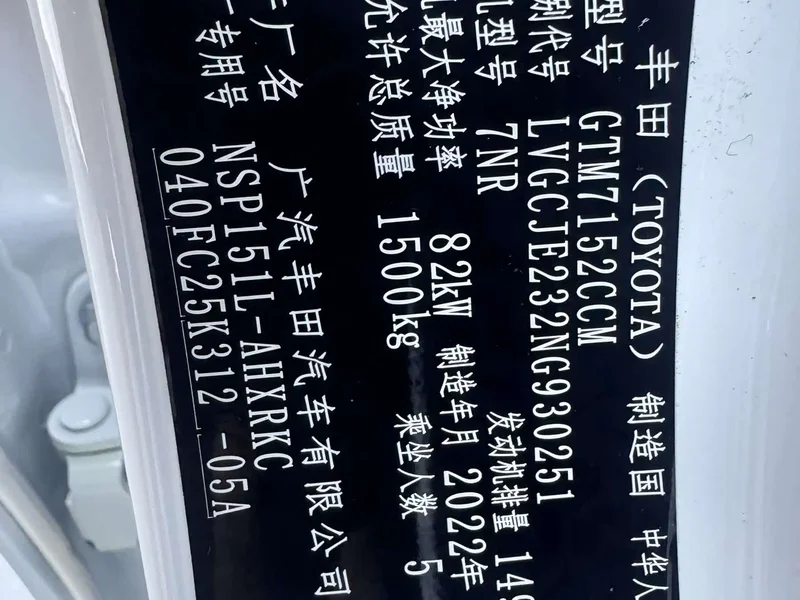 丰田（TOYOTA） 制造国 中华人
型号 GTM7152CCM
别代号 LVGCJE232NG930251
型号 7NR 发动机排量 149
最大净功率 82kW 制造年月 2022年
允许总质量 1500kg 乘坐人数 5
厂名 广汽丰田汽车有限公司
专用号 NSP151L-AHXRKC
040FC25K312 -05A